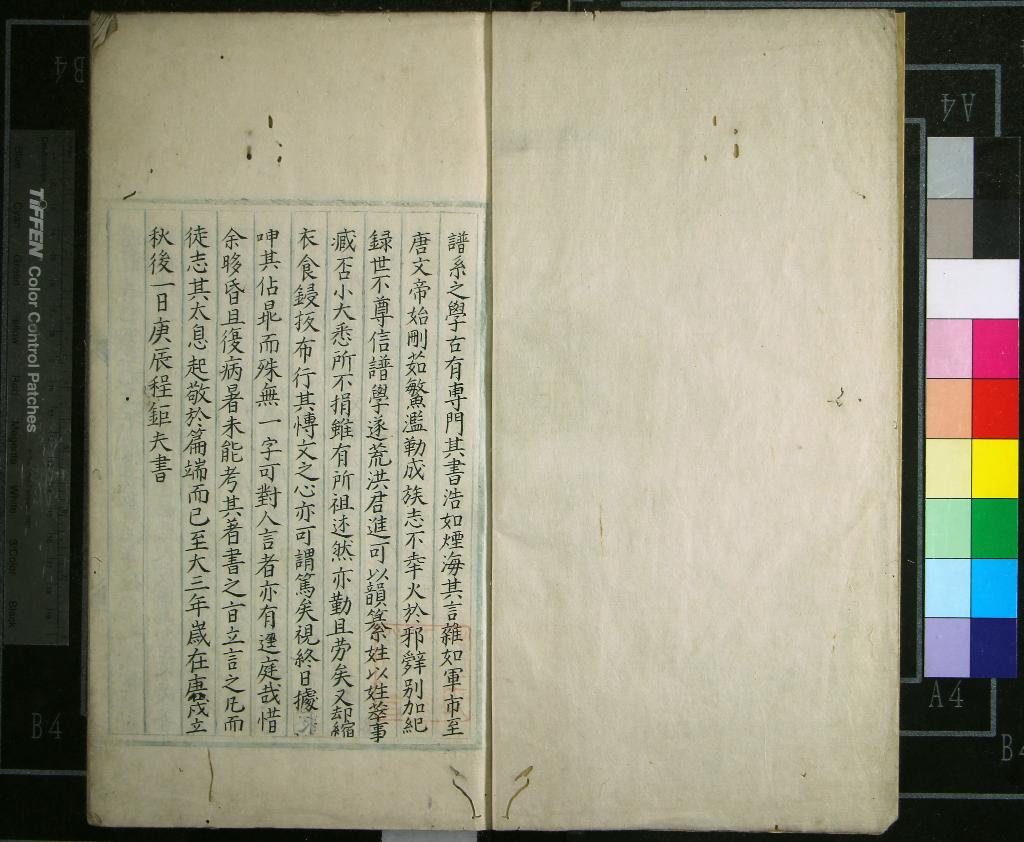 譜系之學古有専門其書浩如煙海其言雜如軍市至
唐文帝始刪茹繁濫勒成族志不幸火於邪辟别加紀
録世不尊信譜學遂荒洪君進可以韻纂姓以姓萃事
臧否小大悉所不捐雖有所祖述然亦勤且劳矣又却縮
衣食鋟板布行其愽文之心亦可謂篤矣視終日據
呻其佔畢而殊無一字可對人言者亦有逕庭哉惜
余眵昏且復病暑未能考其著書之㫖立言之凡而
徒志其太息起敬於篇端而已至大三年嵗在庚戌立
秋後一日庚辰程鉅夫書
TIFFEN Color Control Patches
B4
A4
A4
B4